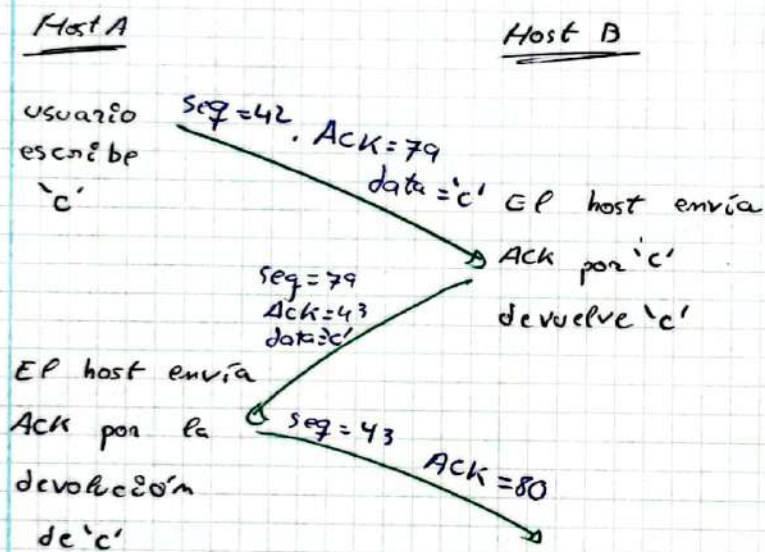 Host A
Host B
usuario
escribe
'c'
seq=42. ACK=79
data='c'
El host envía
ACK por 'c'
devuelve 'c'
seq=79
ACK=43
data='c'
El host envía
ACK por la
devolución
de 'c'
seq=43 ACK=80